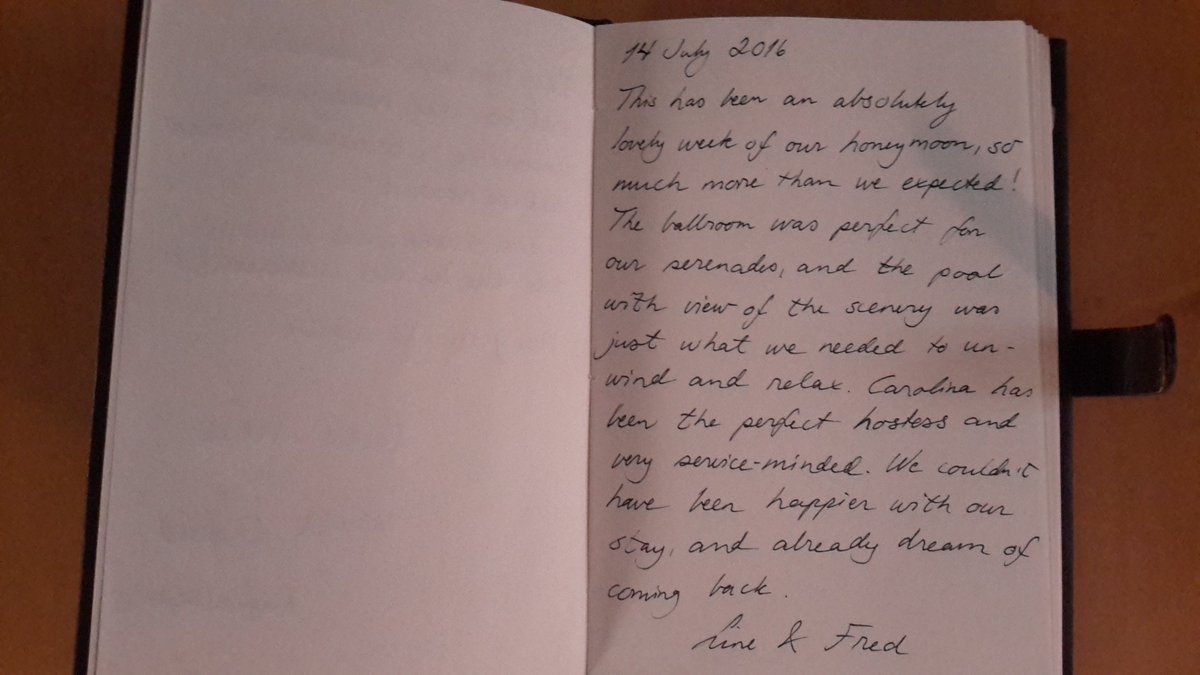 14 July 2016
This has been an absolutely
lovely week of our honeymoon, so
much more than we expected!
The ballroom was perfect for
our serenades, and the pool
with view of the scenery was
just what we needed to un-
wind and relax. Carolina has
been the perfect hostess and
very service-minded. We couldn't
have been happier with our
stay, and already dream of
coming back.
Line & Fred